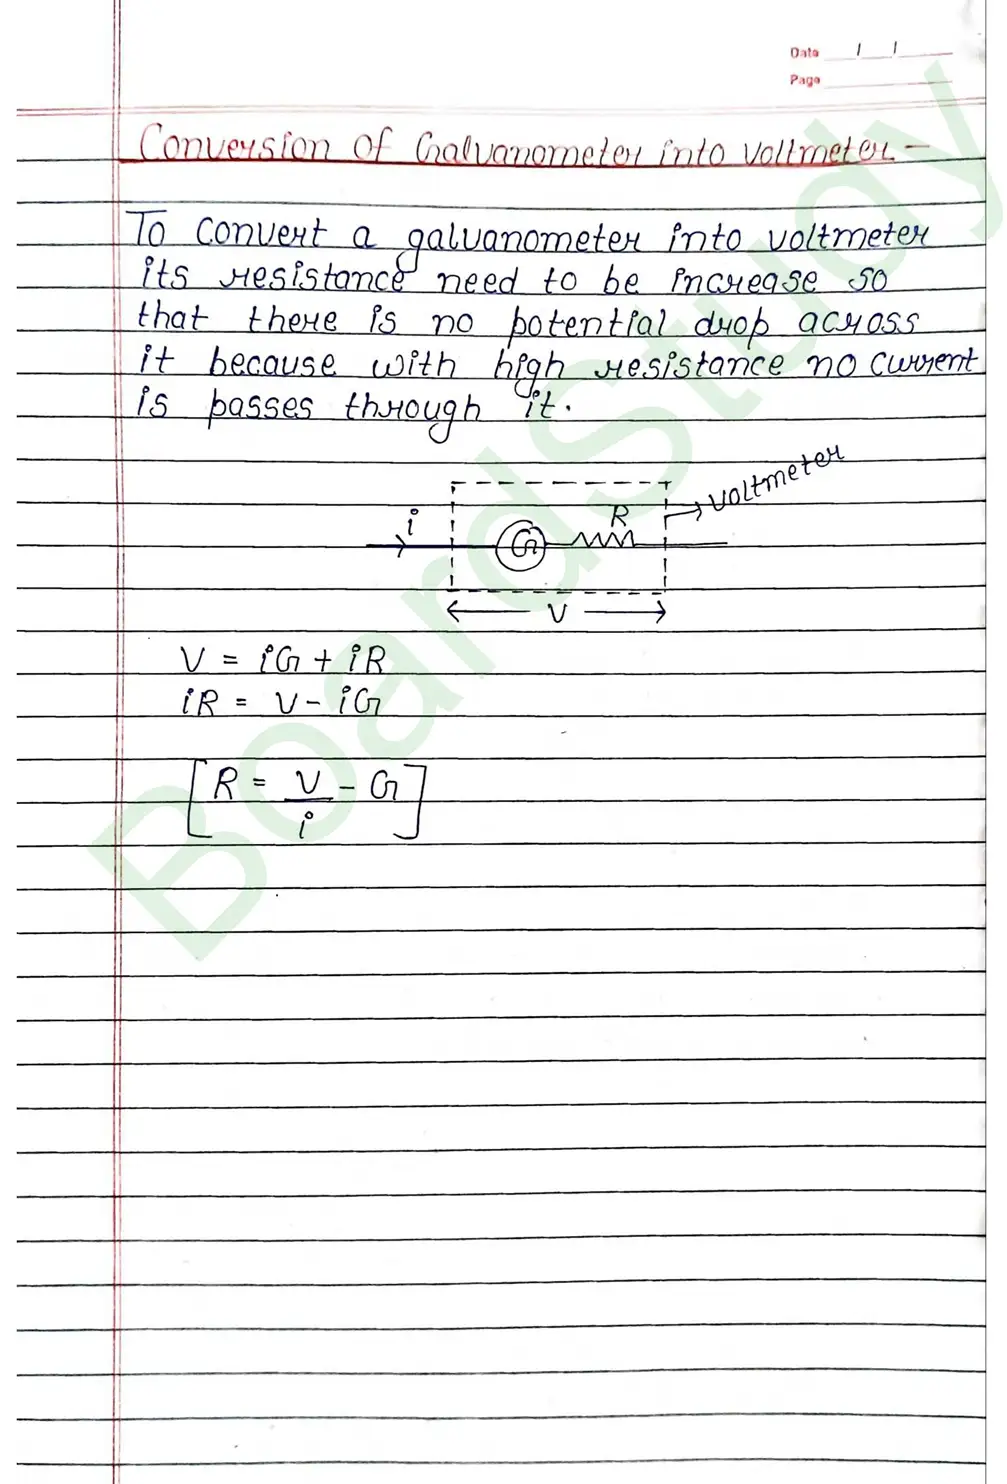 Date / /
Page
Conversion of Galvanometer into voltmeter -
To convert a galvanometer into voltmeter
its resistance need to be increase so
that there is no potential drop across
it because with high resistance no current
is passes through it.
→ voltmeter
i
G
R
V
V = iG + iR
iR = V - iG
[R = V/i - G]
BoardStudy